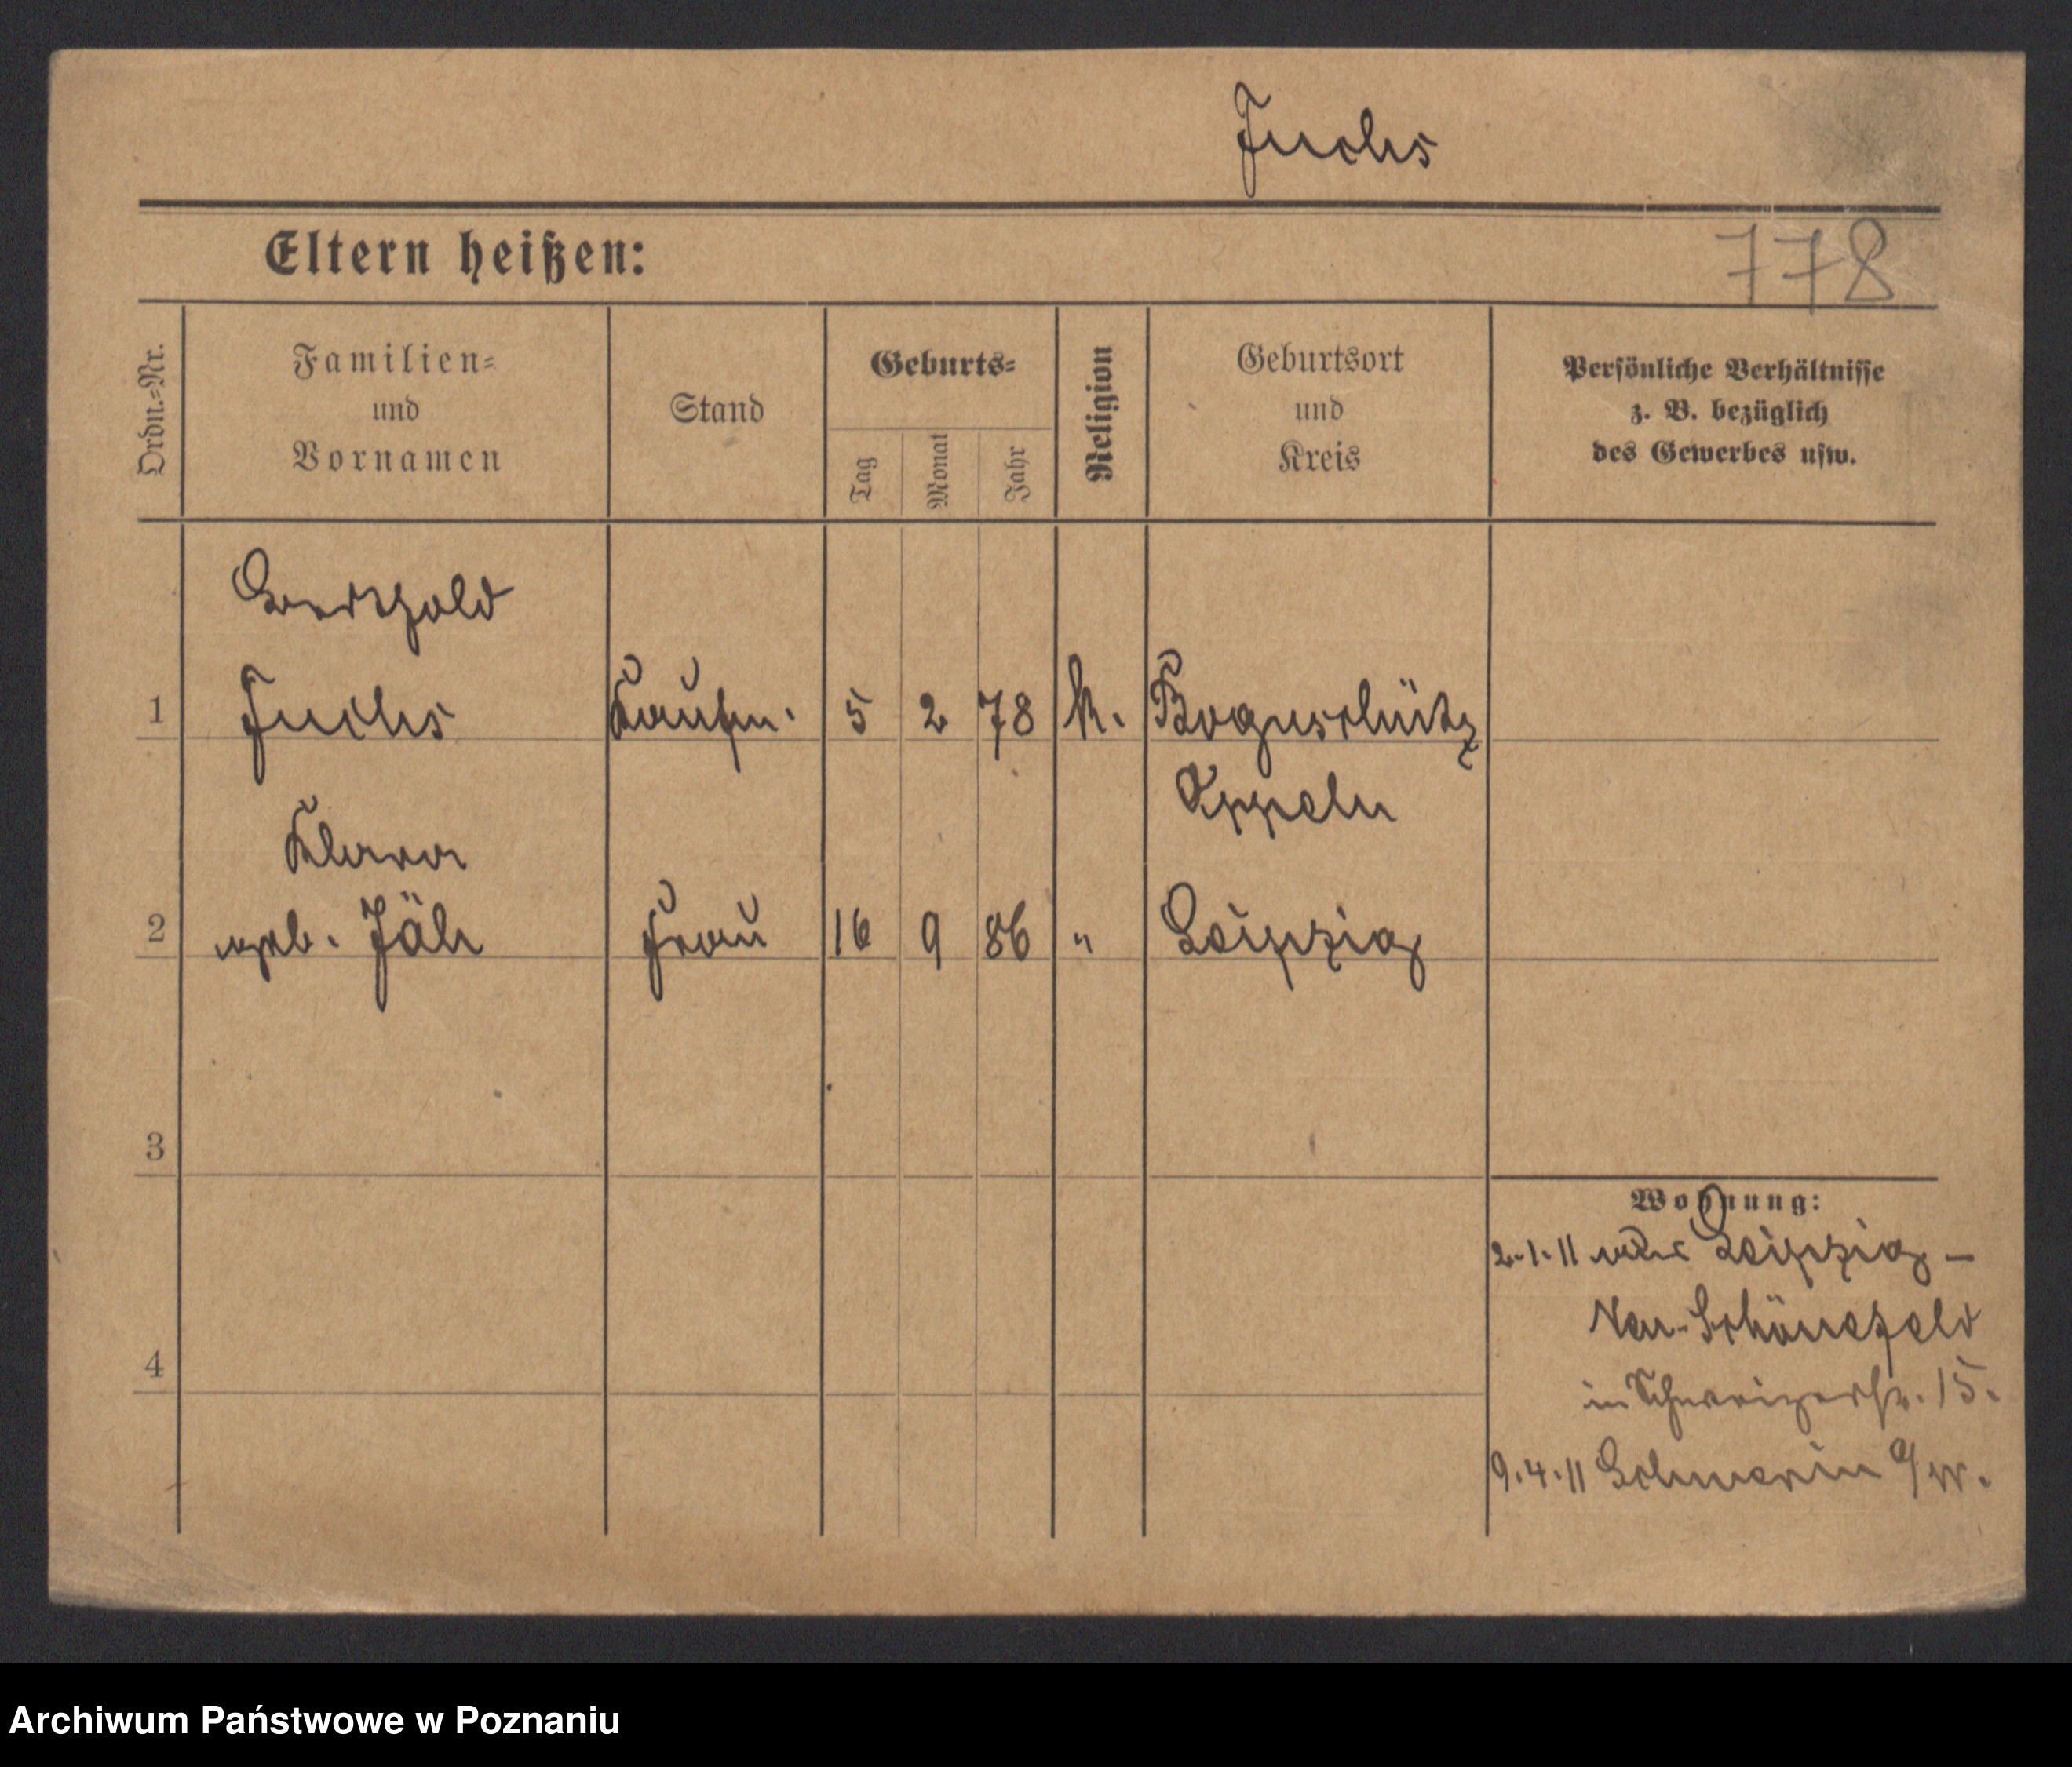 Fuchs
Eltern heißen:
778
Ordn.=Nr.
Familien=
und
Vornamen
Stand
Geburts=
Tag
Monat
Jahr
Religion
Geburtsort
und
Kreis
Persönliche Verhältnisse
z. B. bezüglich
des Gewerbes usw.
Berthold
1 Fuchs Kaufm. 5 2 78 k. Boguschütz
Oppeln
Klara
2 geb. Jäh Frau 16 9 86 " Leipzig
3
Wohnung:
2.1.11 Leipzig -
Neu-Schönefeld
4
in Schweizerstr. 15.
9.4.11 Schwerin a/W.
Archiwum Państwowe w Poznaniu